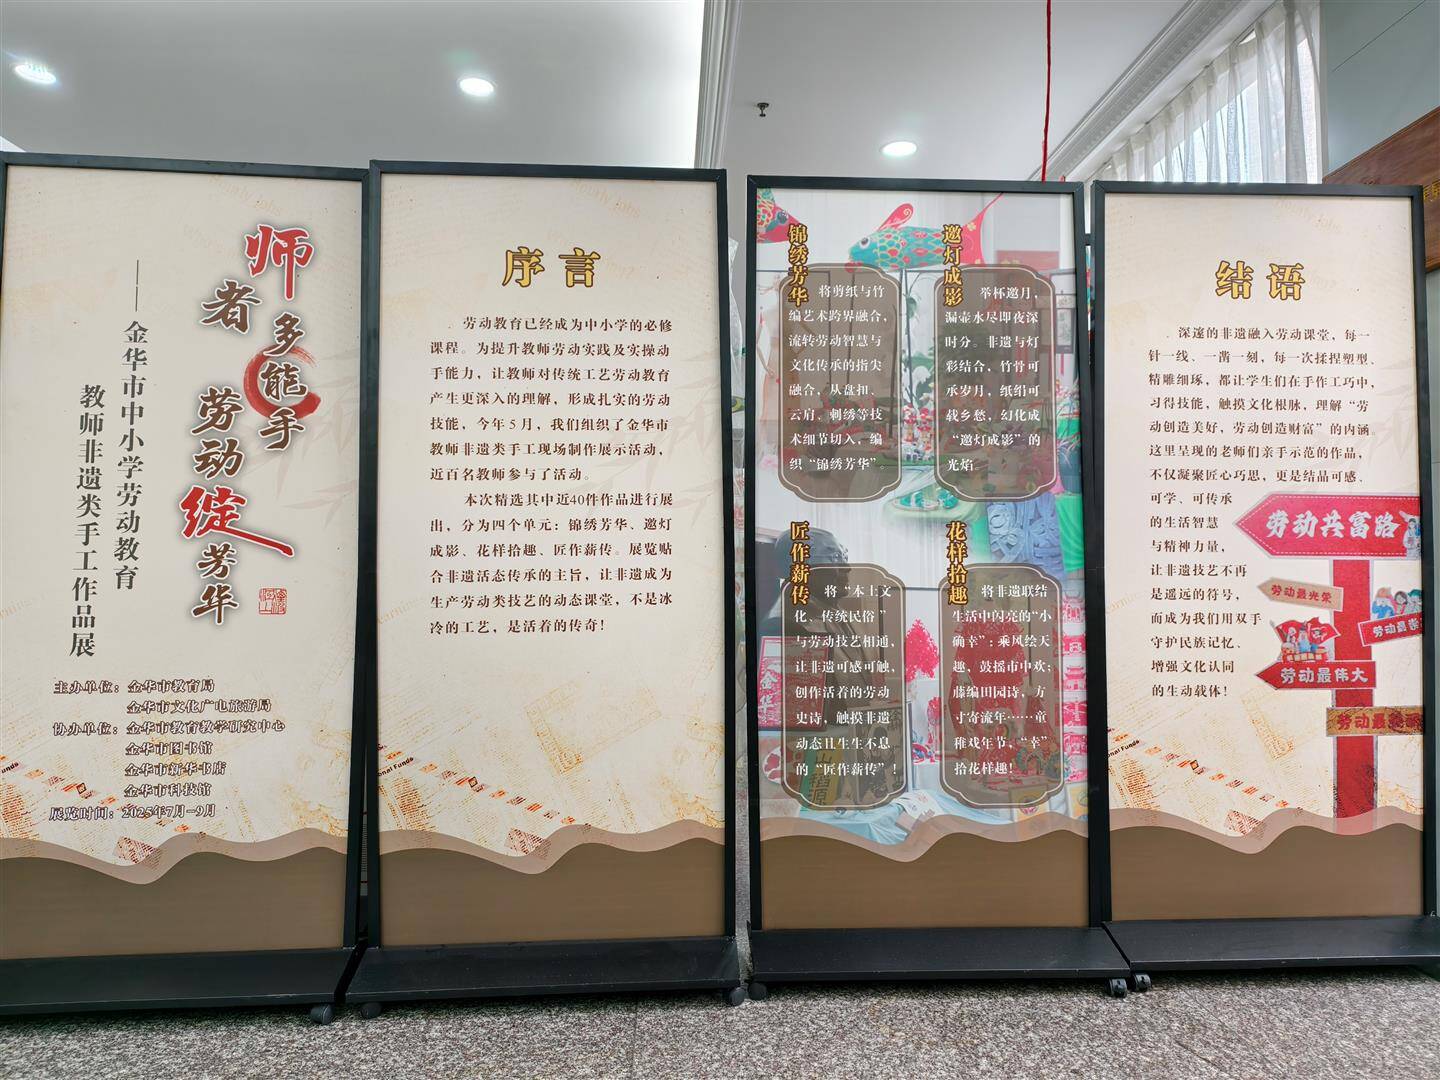 师者多能手
劳动绽芳华
——金华市中小学劳动教育
教师非遗类手工作品展
主办单位：金华市教育局
金华市文化广电旅游局
协办单位：金华市教育教学研究中心
金华市图书馆
金华市新华书店
金华市科技馆
展览时间：2025年7月-9月
序言
劳动教育已经成为中小学的必修
课程。为提升教师劳动实践及实操动
手能力，让教师对传统工艺劳动教育
产生更深入的理解，形成扎实的劳动
技能，今年5月，我们组织了金华市
教师非遗类手工现场制作展示活动，
近百名教师参与了活动。
本次精选其中近40件作品进行展
出，分为四个单元：锦绣芳华、邀灯
成影、花样拾趣、匠作薪传。展览贴
合非遗活态传承的主旨，让非遗成为
生产劳动类技艺的动态课堂，不是冰
冷的工艺，是活着的传奇！
锦绣芳华
将剪纸与竹
编艺术跨界融合，
流转劳动智慧与
文化传承的指尖
融合，从盘扣、
云肩、刺绣等技
术细节切入，编
织“锦绣芳华”。
邀灯成影
举杯邀月，
漏壶水尽即夜深
时分。非遗与灯
彩结合，竹骨可
承岁月，纸绢可
载乡愁，幻化成
“邀灯成影”的
光焰。
匠作薪传
将“本土文
化、传统民俗”
与劳动技艺相通，
让非遗可感可触，
创作活着的劳动
史诗，触摸非遗
动态且生生不息
的“匠作薪传”！
花样拾趣
将非遗联结
生活中闪亮的“小
确幸”：乘风绘天
趣，鼓摇市中欢；
藤编田园诗，方
寸寄流年……童
稚戏年节，“幸”
拾花样趣！
结语
深邃的非遗融入劳动课堂，每一
针一线、一凿一刻，每一次揉捏塑型、
精雕细琢，都让学生们在手作工巧中，
习得技能，触摸文化根脉，理解“劳
动创造美好，劳动创造财富”的内涵。
这里呈现的老师们亲手示范的作品，
不仅凝聚匠心巧思，更是结晶可感、
可学、可传承
的生活智慧
与精神力量，
让非遗技艺不再
是遥远的符号，
而成为我们用双手
守护民族记忆、
增强文化认同
的生动载体！
劳动共富路
劳动最光荣
劳动最崇
劳动最伟大
劳动最美丽